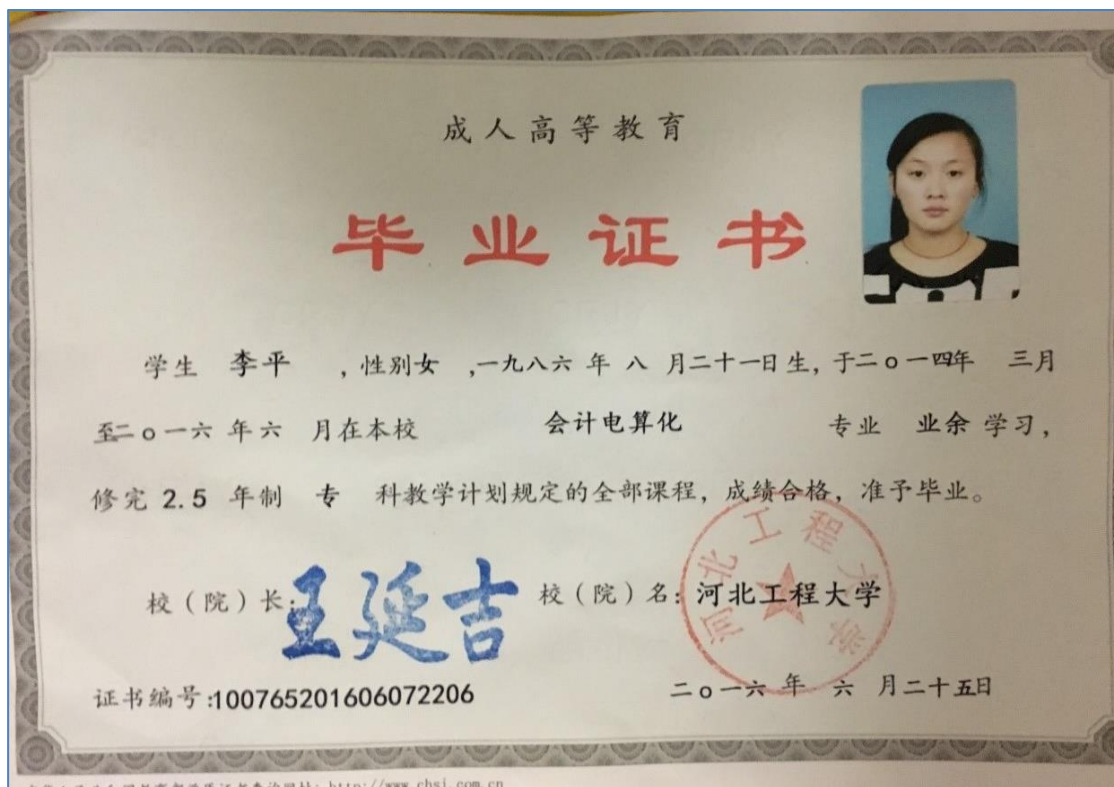 成人高等教育
毕业证书
学生 李平 ，性别女 ，一九八六 年 八 月二十一日生，于二o一四年 三月
至二o一六 年六 月在本校 会计电算化 专业 业余 学习，
修完 2.5 年制 专 科教学计划规定的全部课程，成绩合格，准予毕业。
校（院）长：王延吉 校（院）名：河北工程大学
河北工程大学
证书编号:100765201606072206 二o一六 年 六 月二十五日
http://www.chsi.com.cn